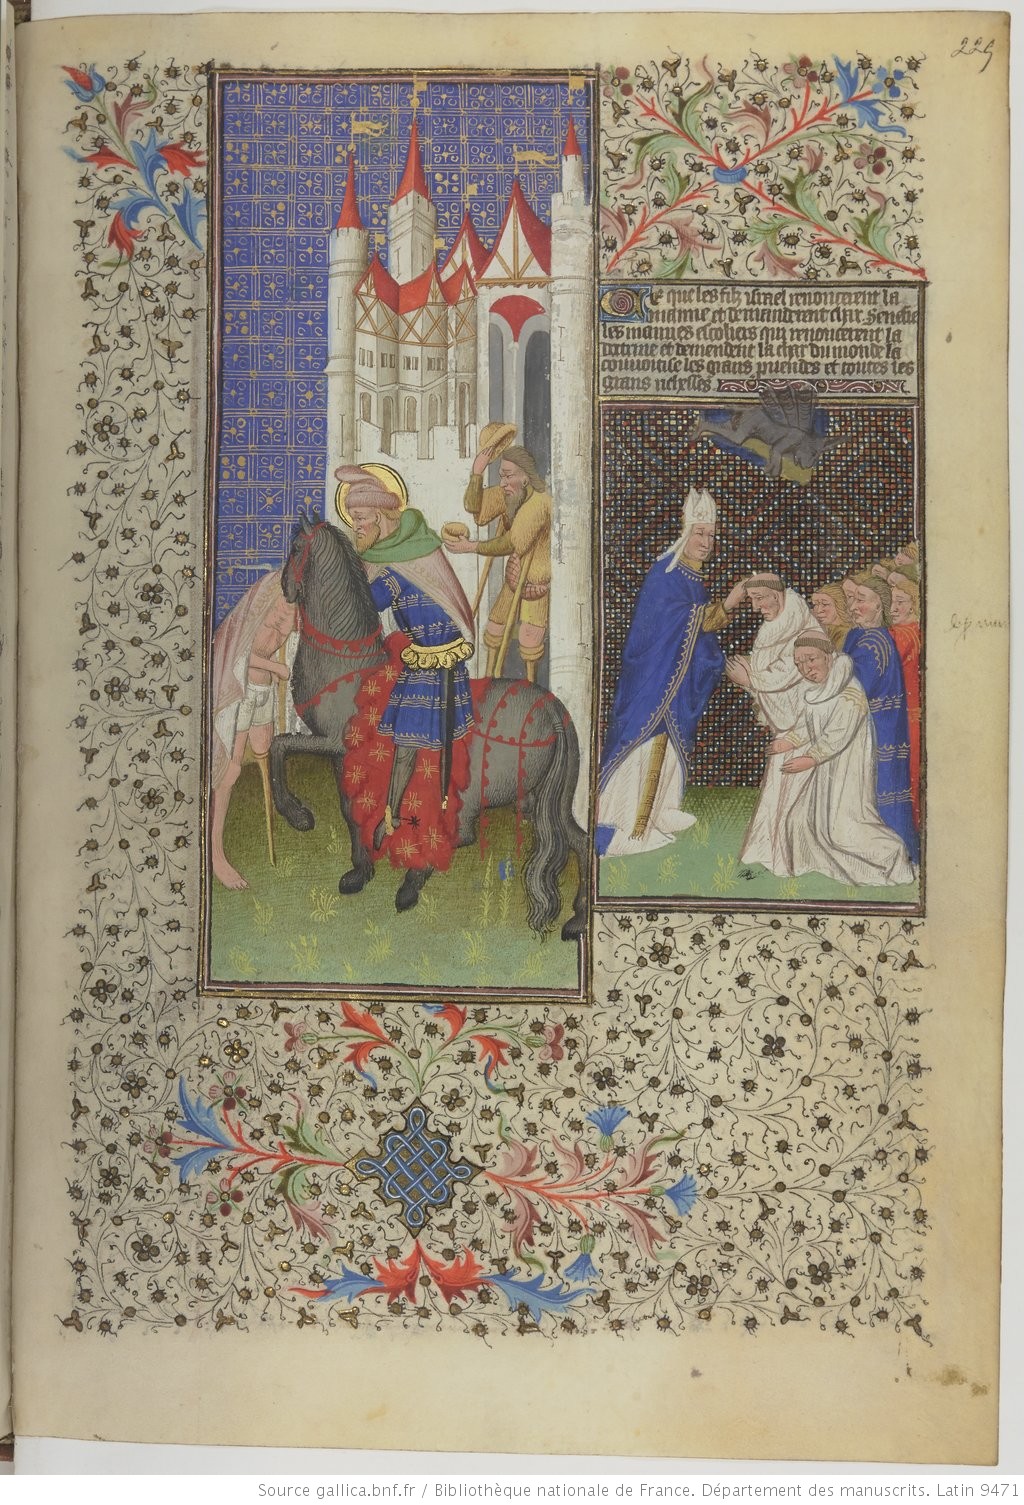 225
Ce que les filz israel renoncerent la
manne et demanderent char. Senefie
les mauves escoliers qui renoncerent la
doctrine et demendent la char du monde la
couvoitise les grans prvendes et toutes les
grans richesses.
Source gallica.bnf.fr / Bibliothèque nationale de France. Département des manuscrits. Latin 9471